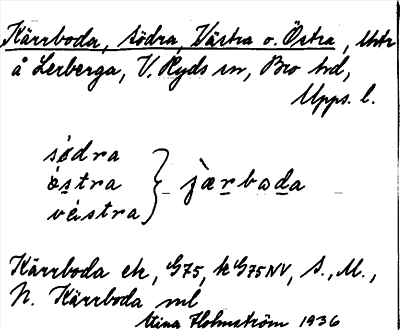 Kärrboda, Södra, Västra o. Östra, Utr
å Lerberga, V. Ryds sn, Bro hd,
Upps. l.
södra
östra } jærboda
västra
Kärrboda etc, G75, k G75NV, S., M.,
N. Kärrboda ml
Stina Holmström 1936